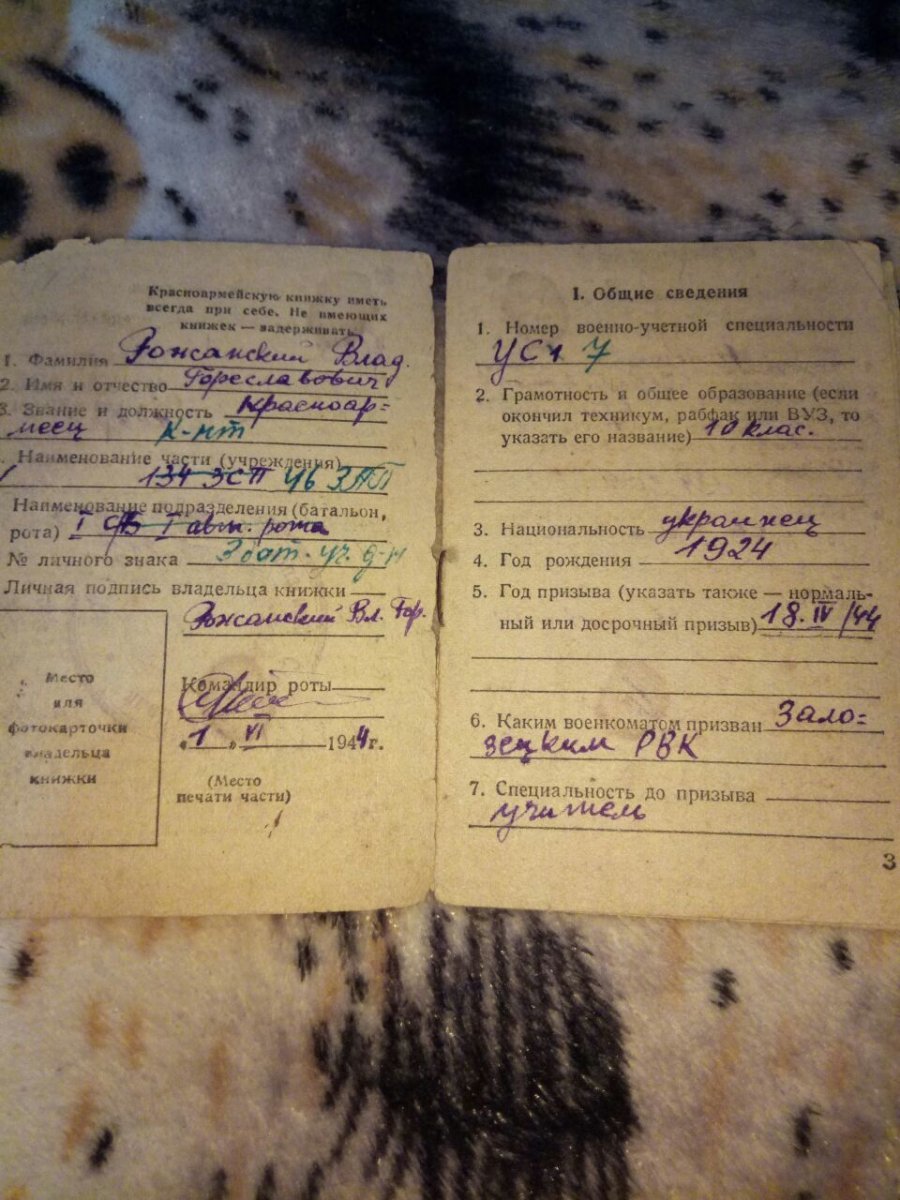 Красноармейскую книжку иметь
всегда при себе. Не имеющих
книжек — задерживать
1. Фамилия Рожанский Влад.
2. Имя и отчество Гореславович
3. Звание и должность Красноар-
меец к-нт
Наименование части (учреждения)
134 ЗСП 46 ЗАП
Наименование подразделения (батальон,
рота) I СБ I авт. рота
№ личного знака 3 бат. уч. д-н
Личная подпись владельца книжки
Рожанский Вл. Гор.
Место
для
фотокарточки
владельца
книжки
Командир роты
"1" VI 1944 г.
(Место
печати части)
I. Общие сведения
1. Номер военно-учетной специальности
УС 1 7
2. Грамотность и общее образование (если
окончил техникум, рабфак или ВУЗ, то
указать его название) 10 клас.
3. Национальность украинец
4. Год рождения 1924
5. Год призыва (указать также — нормаль-
ный или досрочный призыв) 18. IV /44
6. Каким военкоматом призван Зало=
зецким РВК
7. Специальность до призыва
учитель
3